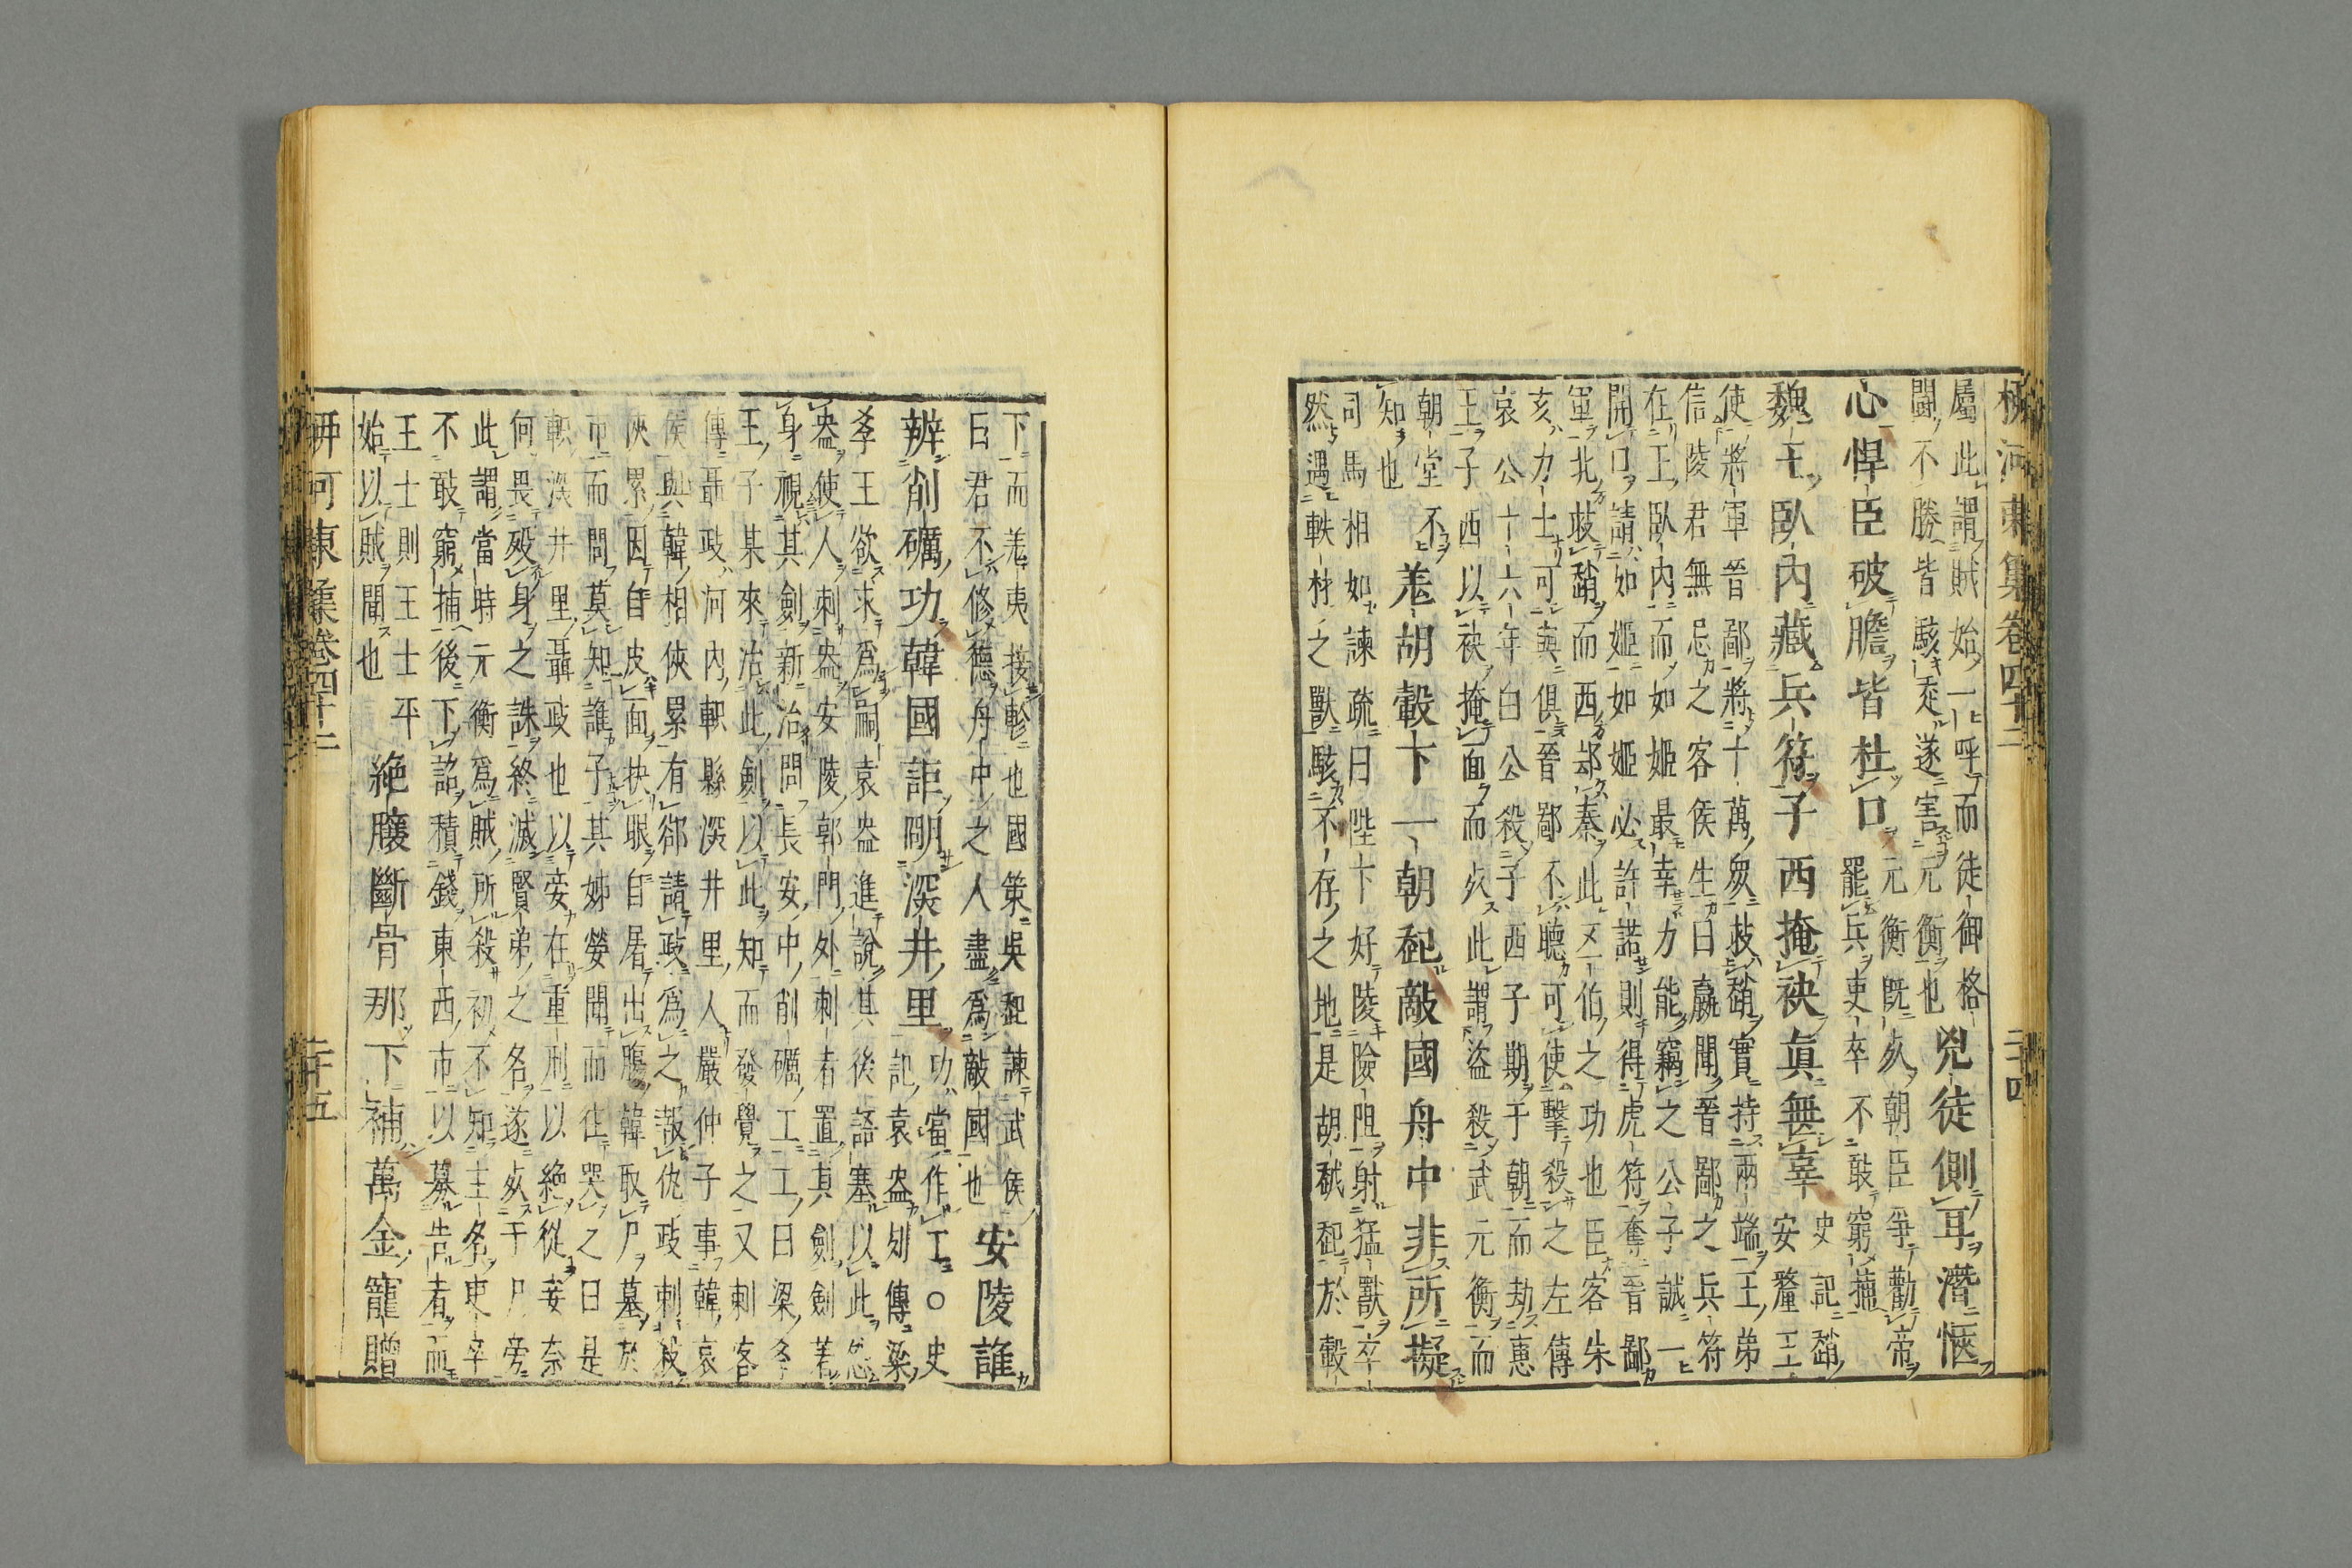 柳河東集卷四十二
二十四
屬此謂賊始一呼而徒御格
鬪不勝皆駭走遂害元衡也
兇徒側耳潛愜
心悍臣破膽皆杜口
元衡既死朝臣爭勸帝
罷兵吏卒不敢窮捕
魏王臥內藏兵符子西掩袂眞無辜
史記趙
安釐王
使將軍晉鄙將十萬衆救趙實持兩端王弟
信陵君無忌之客侯生曰嬴聞晉鄙之兵符
在王臥內而如姬最幸力能竊之公子誠一
開口請如姬如姬必許諾則得虎符奪晉鄙
軍北救趙而西却秦此五伯之功也臣客朱
亥力士可與俱晉鄙不聽可使擊殺之左傳
哀公十六年白公殺子西子期于朝而劫惠
王子西以袂掩面而死此謂盜殺武元衡而
朝堂不
知也
羌胡轂下一朝起敵國舟中非所擬
司馬相如諫疏曰陛下好陵險阻射猛獸卒
然遇軼材之獸駭不存之地是胡越起於轂
下而羌夷接軫也國策吳起諫武侯
曰君不修德舟中之人盡爲敵國也
安陵誰
辨削礪功韓國詎明深井里
功當作工○史
記袁盎列傳梁
孝王欲求爲嗣袁盎進說其後語塞以此怨
盎使人刺盎安陵郭門外刺者置其劍劍著
身視其劍新治問長安中削礪工工曰梁孝
王子某來治此劍以此知而發覺之又刺客
傳聶政河內軹縣深井里人嚴仲子事韓哀
侯與韓相俠累有郤請政爲之報仇政刺殺
俠累因自皮面抉眼自屠出腸韓取尸暴於
市而問莫知誰子其姊嫈聞而往哭之曰是
軹深井里聶政也以妾在重刑以絶從妾奈
何畏殁身之誅終滅賢弟之名遂死于尸旁
此謂當時元衡爲賊所殺初不知主名吏卒
不敢窮捕後下詔積錢東西市以募告者而
王士則王士平
始以賊聞也
絶臏斷骨那下補萬金寵贈
柳河東集卷四十二
二十五